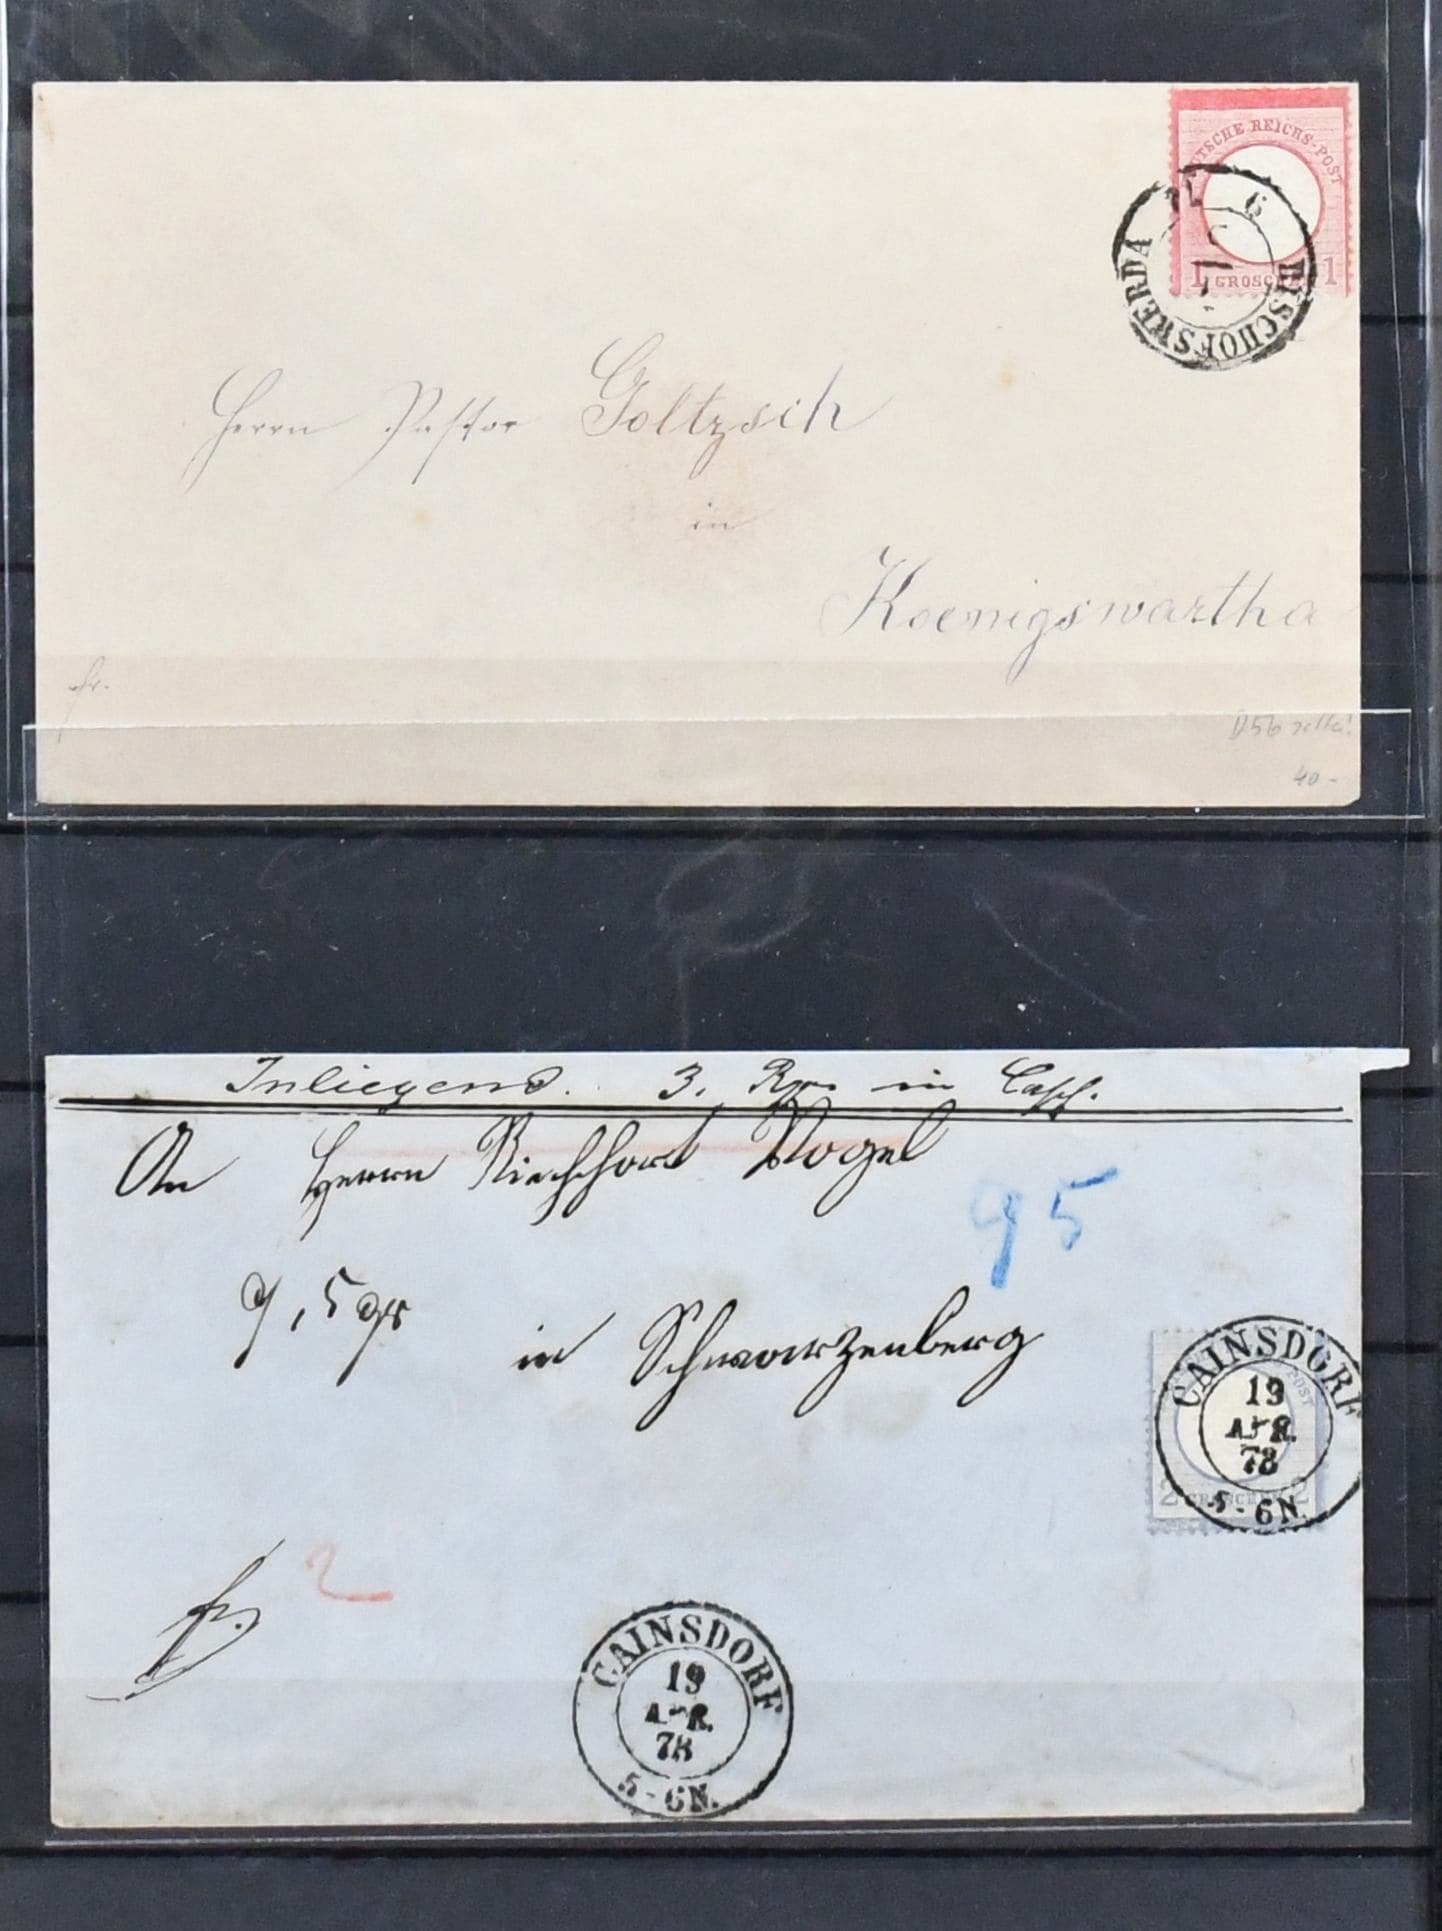 DEUTSCHE REICHS-POST
1 GROSCHEN 1
BISCHOFSWERDA
Herrn Pastor Goltzsch
in
Koenigswartha
fr.
40-
Inliegend. 3. in
An Herrn Vogel
95
in Schwarzenberg
CAINSDORF
19
APR.
78
5-6N.
POST
2 GROSCHEN 2
fr.
2
CAINSDORF
19
APR.
78
5-6N.